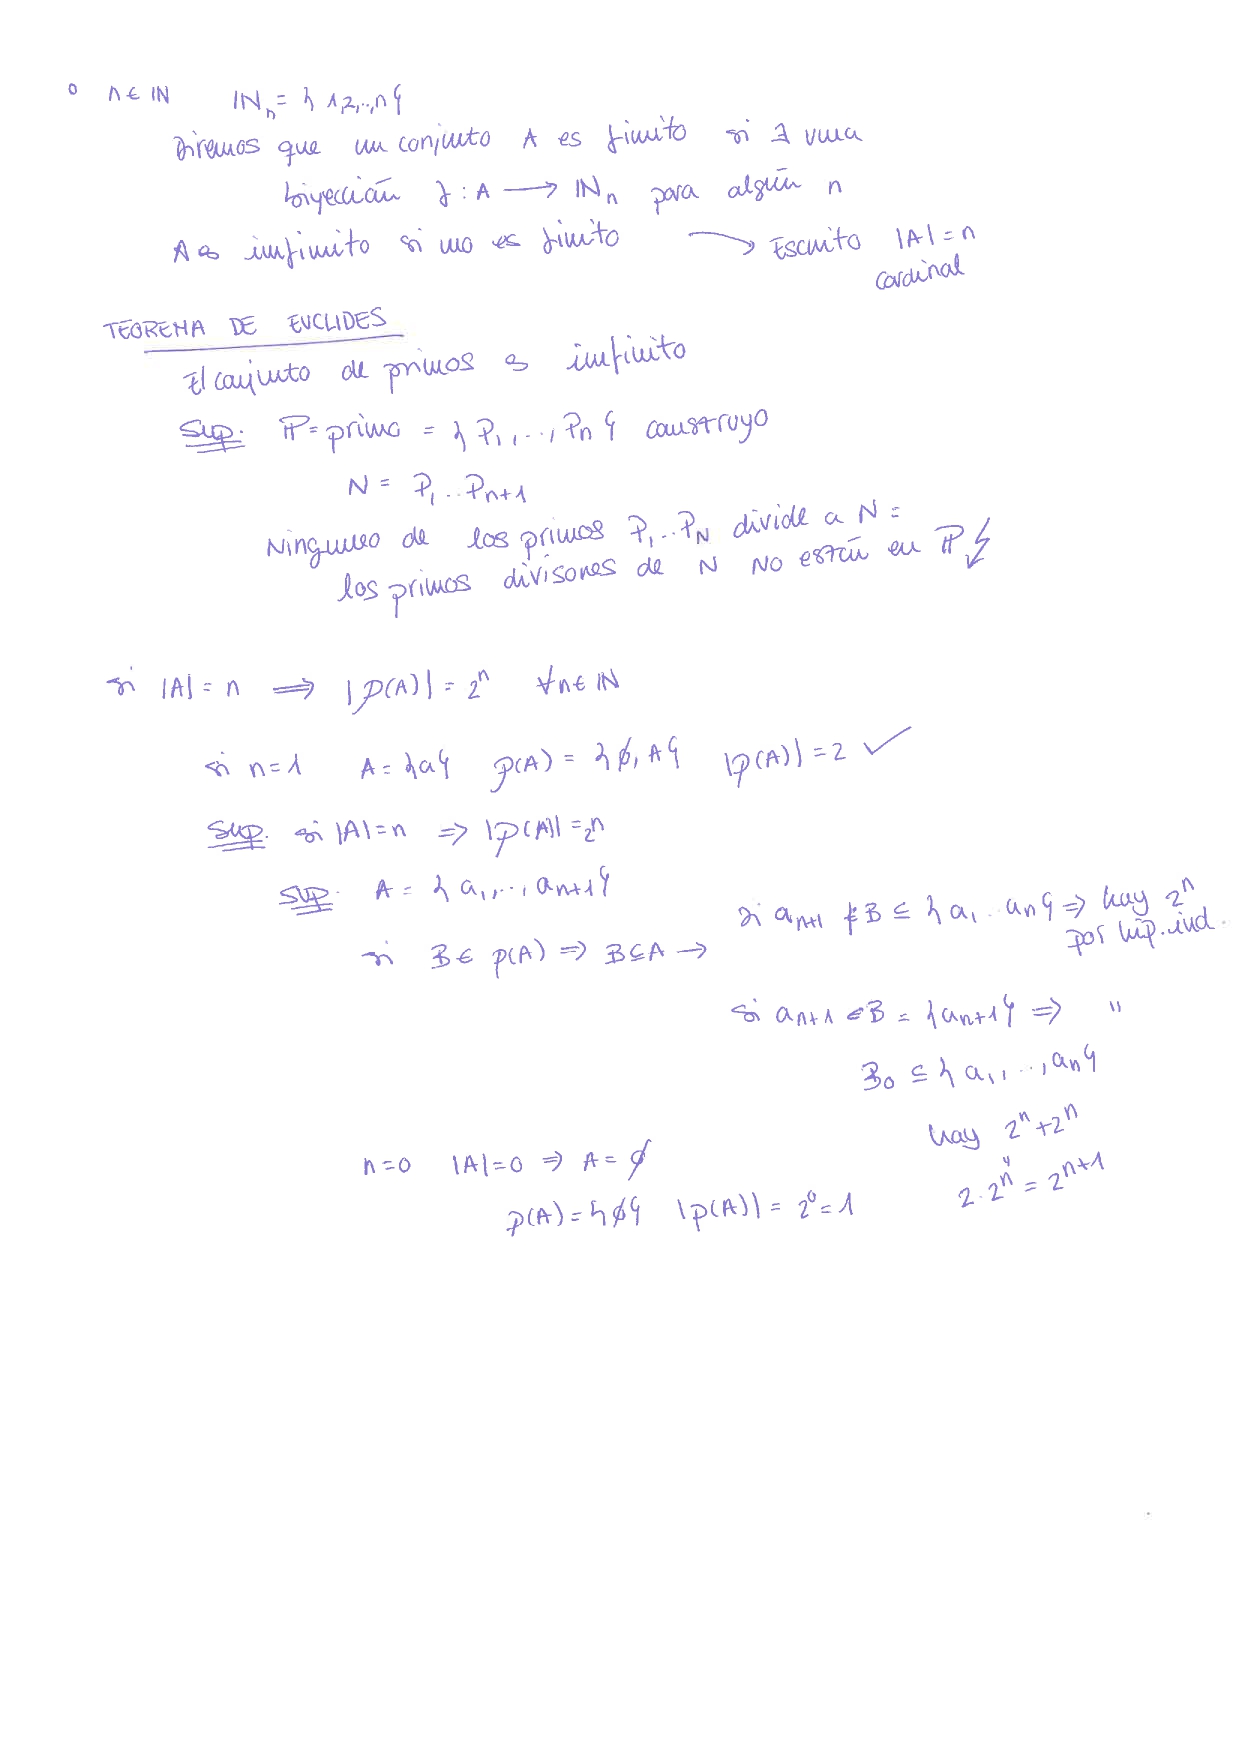 ° n ∈ ℕ ℕₙ = {1,2,..,n}
Diremos que un conjunto A es finito si ∃ una
biyección f : A ⟶ ℕₙ para algún n
A es infinito si no es finito ⟶ Escrito |A| = n
cardinal
TEOREMA DE EUCLIDES
El conjunto de primos es infinito
Sup. ℙ = primo = {P₁,...,Pₙ} construyo
N = P₁..Pₙ₊₁
Ninguno de los primos P₁..P_N divide a N =
los primos divisores de N NO están en ℙ ↯
si |A| = n ⟹ |P(A)| = 2ⁿ ∀n ∈ ℕ
si n=1 A = {a} P(A) = {∅, A} |P(A)| = 2 ✓
Sup. si |A| = n ⇒ |P(A)| = 2ⁿ
Sup. A = {a₁,..,aₙ₊₁}
si aₙ₊₁ ∉ B ⊆ {a₁..aₙ} ⇒ hay 2ⁿ
por hip. ind.
si B ∈ p(A) ⇒ B ⊆ A →
si aₙ₊₁ ∈ B = {aₙ₊₁} ⇒ "
B₀ ⊆ {a₁,...,aₙ}
hay 2ⁿ + 2ⁿ
"
2·2ⁿ = 2ⁿ⁺¹
n=0 |A|=0 ⇒ A = ∅
p(A) = {∅} |p(A)| = 2⁰ = 1